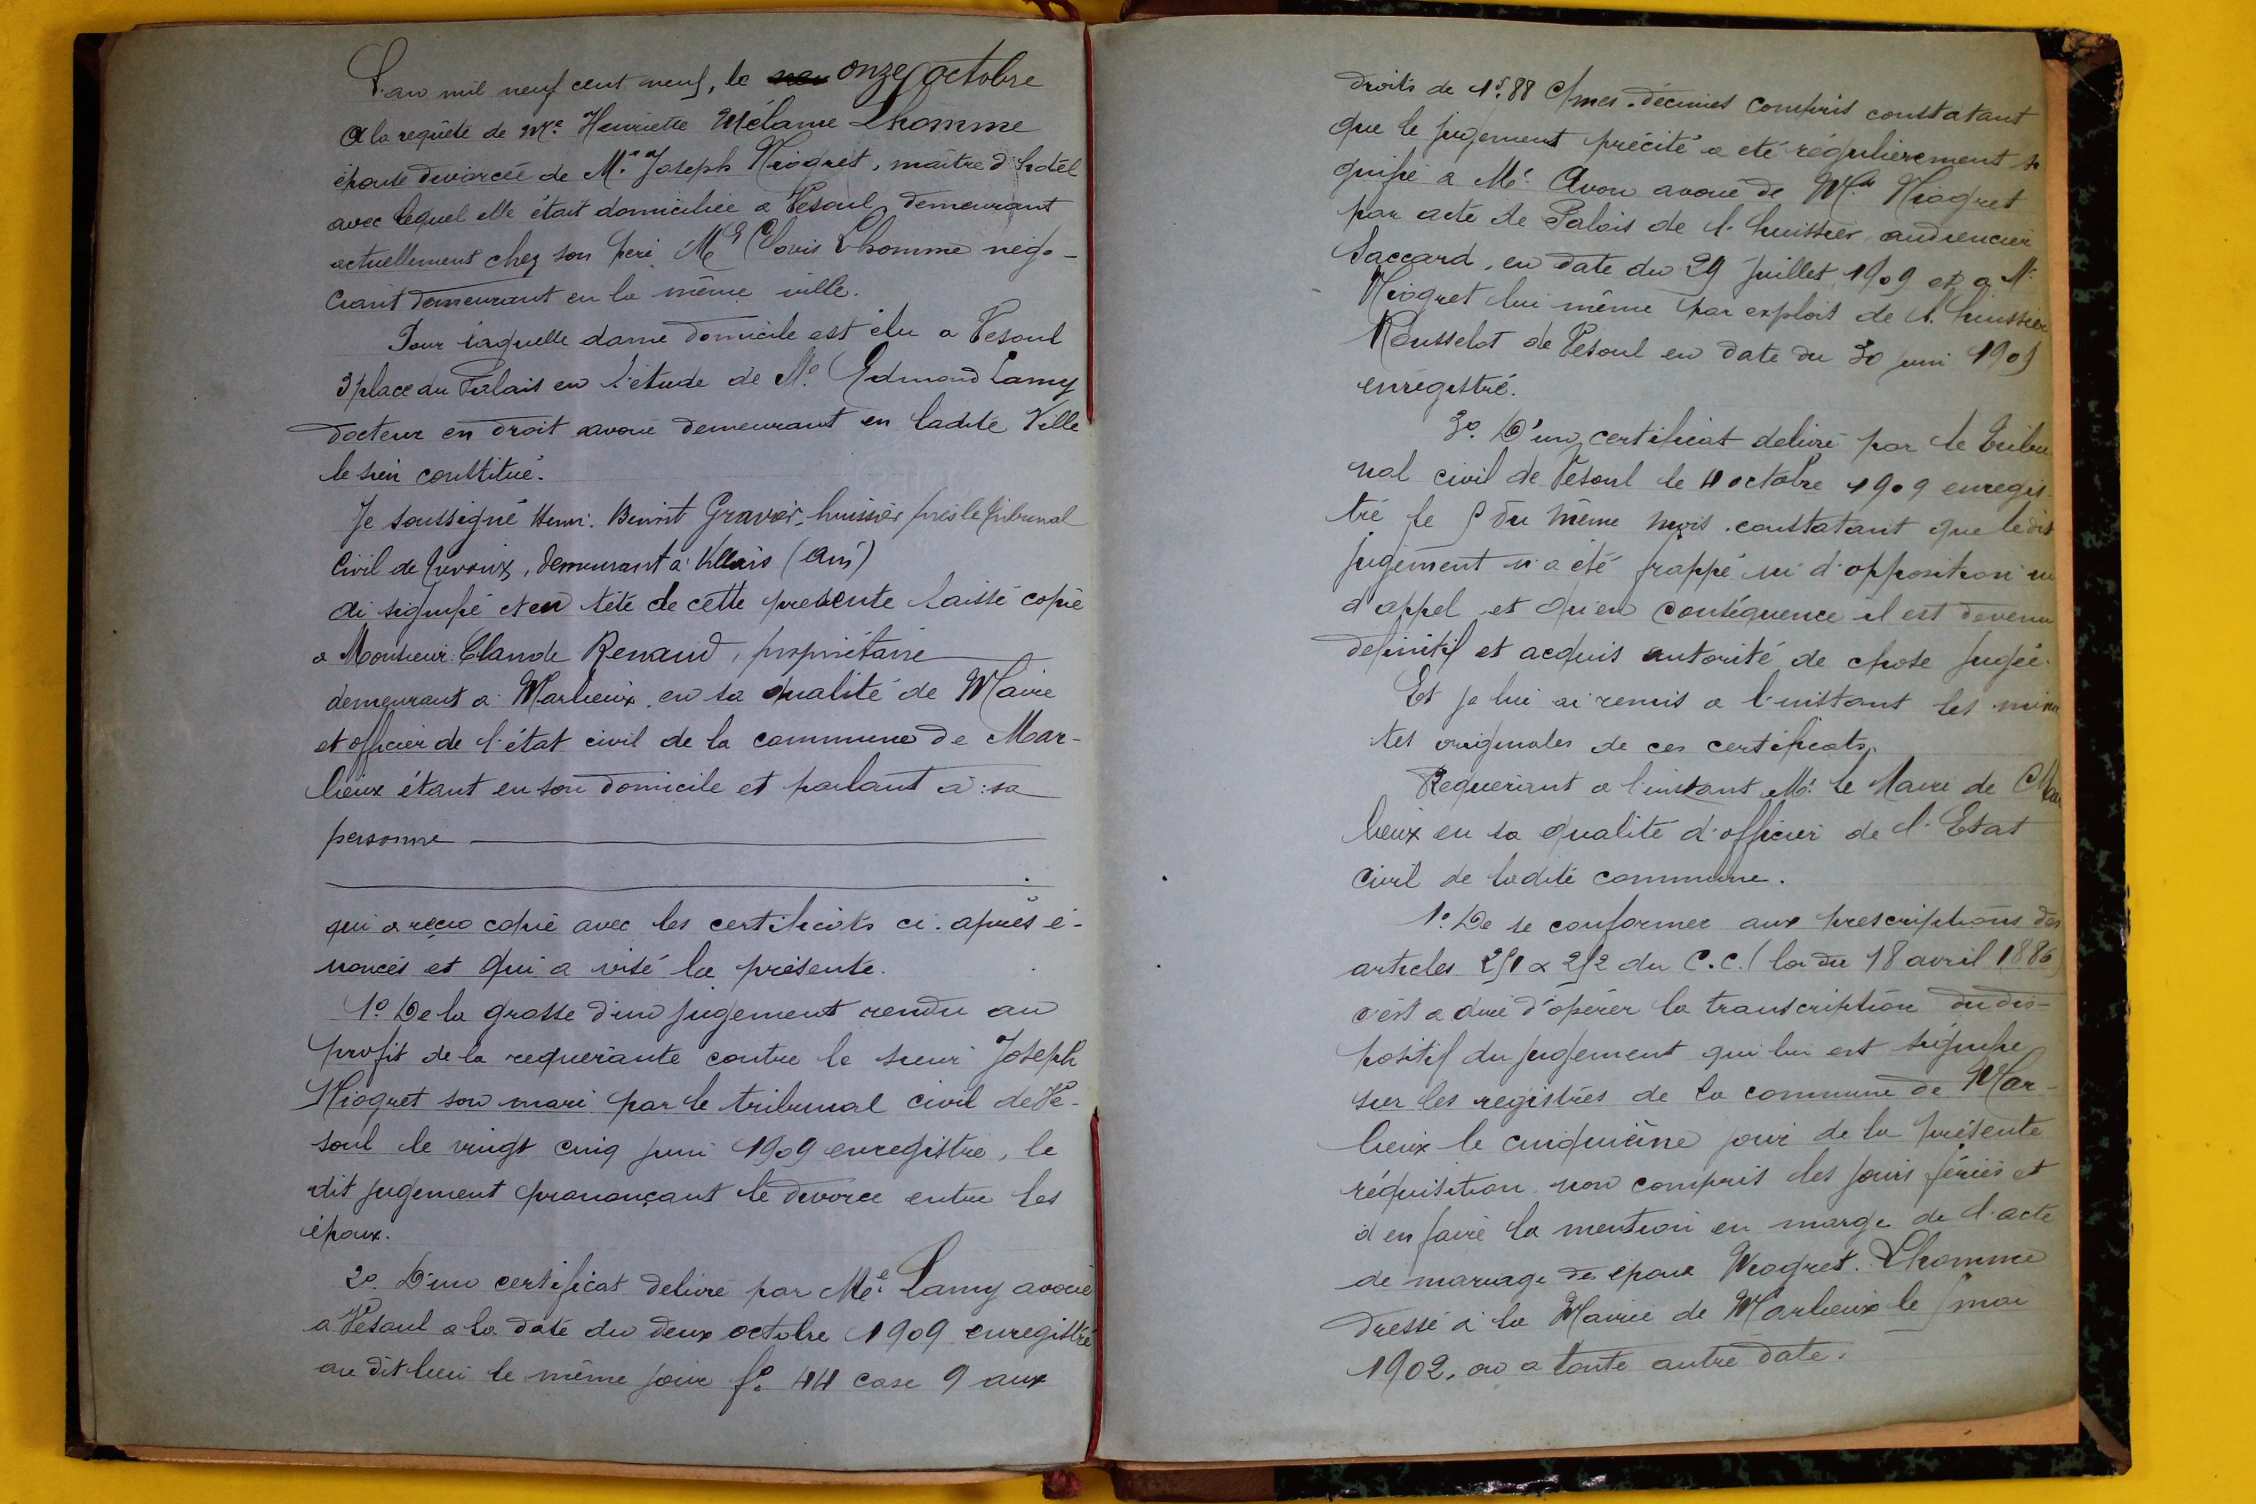 L'an mil neuf cent neuf, le onze octobre
A la requête de Me Henriette Mélanie Lhomme
épouse divorcée de Mr Joseph Niogret, maître d'hôtel
avec lequel elle était domiciliée a Vesoul, demeurant
actuellement chez son père, Mr Clovis Lhomme négo-
ciant demeurant en la même ville.
Pour laquelle dame domicile est élu a Vesoul
3 place du Palais en l'étude de Me Edmond Lamy
docteur en droit avoué demeurant en ladite Ville
le sien constitué.
Je soussigné Henri Benoit Gravier, huissier près le tribunal
civil de Trévoux, demeurant à Villars (Ain)
ai signifié et en tête de cette présente laissé copie
a Monsieur Claude Renaud, propriétaire
demeurant a Marlieux en sa qualité de Maire
et officier de l'état civil de la commune de Mar-
lieux étant en son domicile et parlant à : sa
personne
qui a reçu copie avec les certificats ci-après é-
noncés et qui a visé la présente.
1o De la grosse d'un jugement rendu au
profit de la requérante contre le sieur Joseph
Niogret son mari par le tribunal civil de Ve-
soul le vingt cinq juin 1909 enregistré, le
dit jugement prononçant le divorce entre les
époux.
2o D'un certificat délivré par Me Lamy avoué
a Vesoul a la date du deux octobre 1909 enregistré
au dit lieu le même jour fo 44 case 9 aux
droits de 1f.88 c/mes décimes compris constatant
que le jugement précité a été régulièrement si
gnifié a Me Avon avoué de Mr Niogret
par acte de Palais de l'huissier audiencier
Saccard, en date du 29 juillet 1909 et a Mr
Niogret lui même par exploit de l'huissier
Rousselot de Vesoul en date du 30 juin 1909
enregistré.
3o D'un certificat délivré par le Tribu
nal civil de Vesoul le 4 octobre 1909 enregis-
tré le 5 du même mois constatant que ledit
jugement n'a été frappé ni d'opposition ni
d'appel et qu'en conséquence il est devenu
définitif et acquis autorité de chose jugée.
Et je lui ai remis a l'instant les minu
tes originales de ces certificats.
Requérant a l'instant Mr le Maire de Mar
lieux en sa qualité d'officier de l'Etat
civil de ladite commune.
1o De se conformer aux prescriptions des
articles 251 & 252 du C.C. (loi du 18 avril 1886)
c'est a dire d'opérer la transcription du dis-
positif du jugement qui lui est signifié
sur les registres de la commune de Mar-
lieux le cinquième jour de la présente
réquisition non compris les jours fériés et
d'en faire la mention en marge de l'acte
de mariage des époux Niogret-Lhomme
dressé à la Mairie de Marlieux le 5 mai
1902, ou a toute autre date.